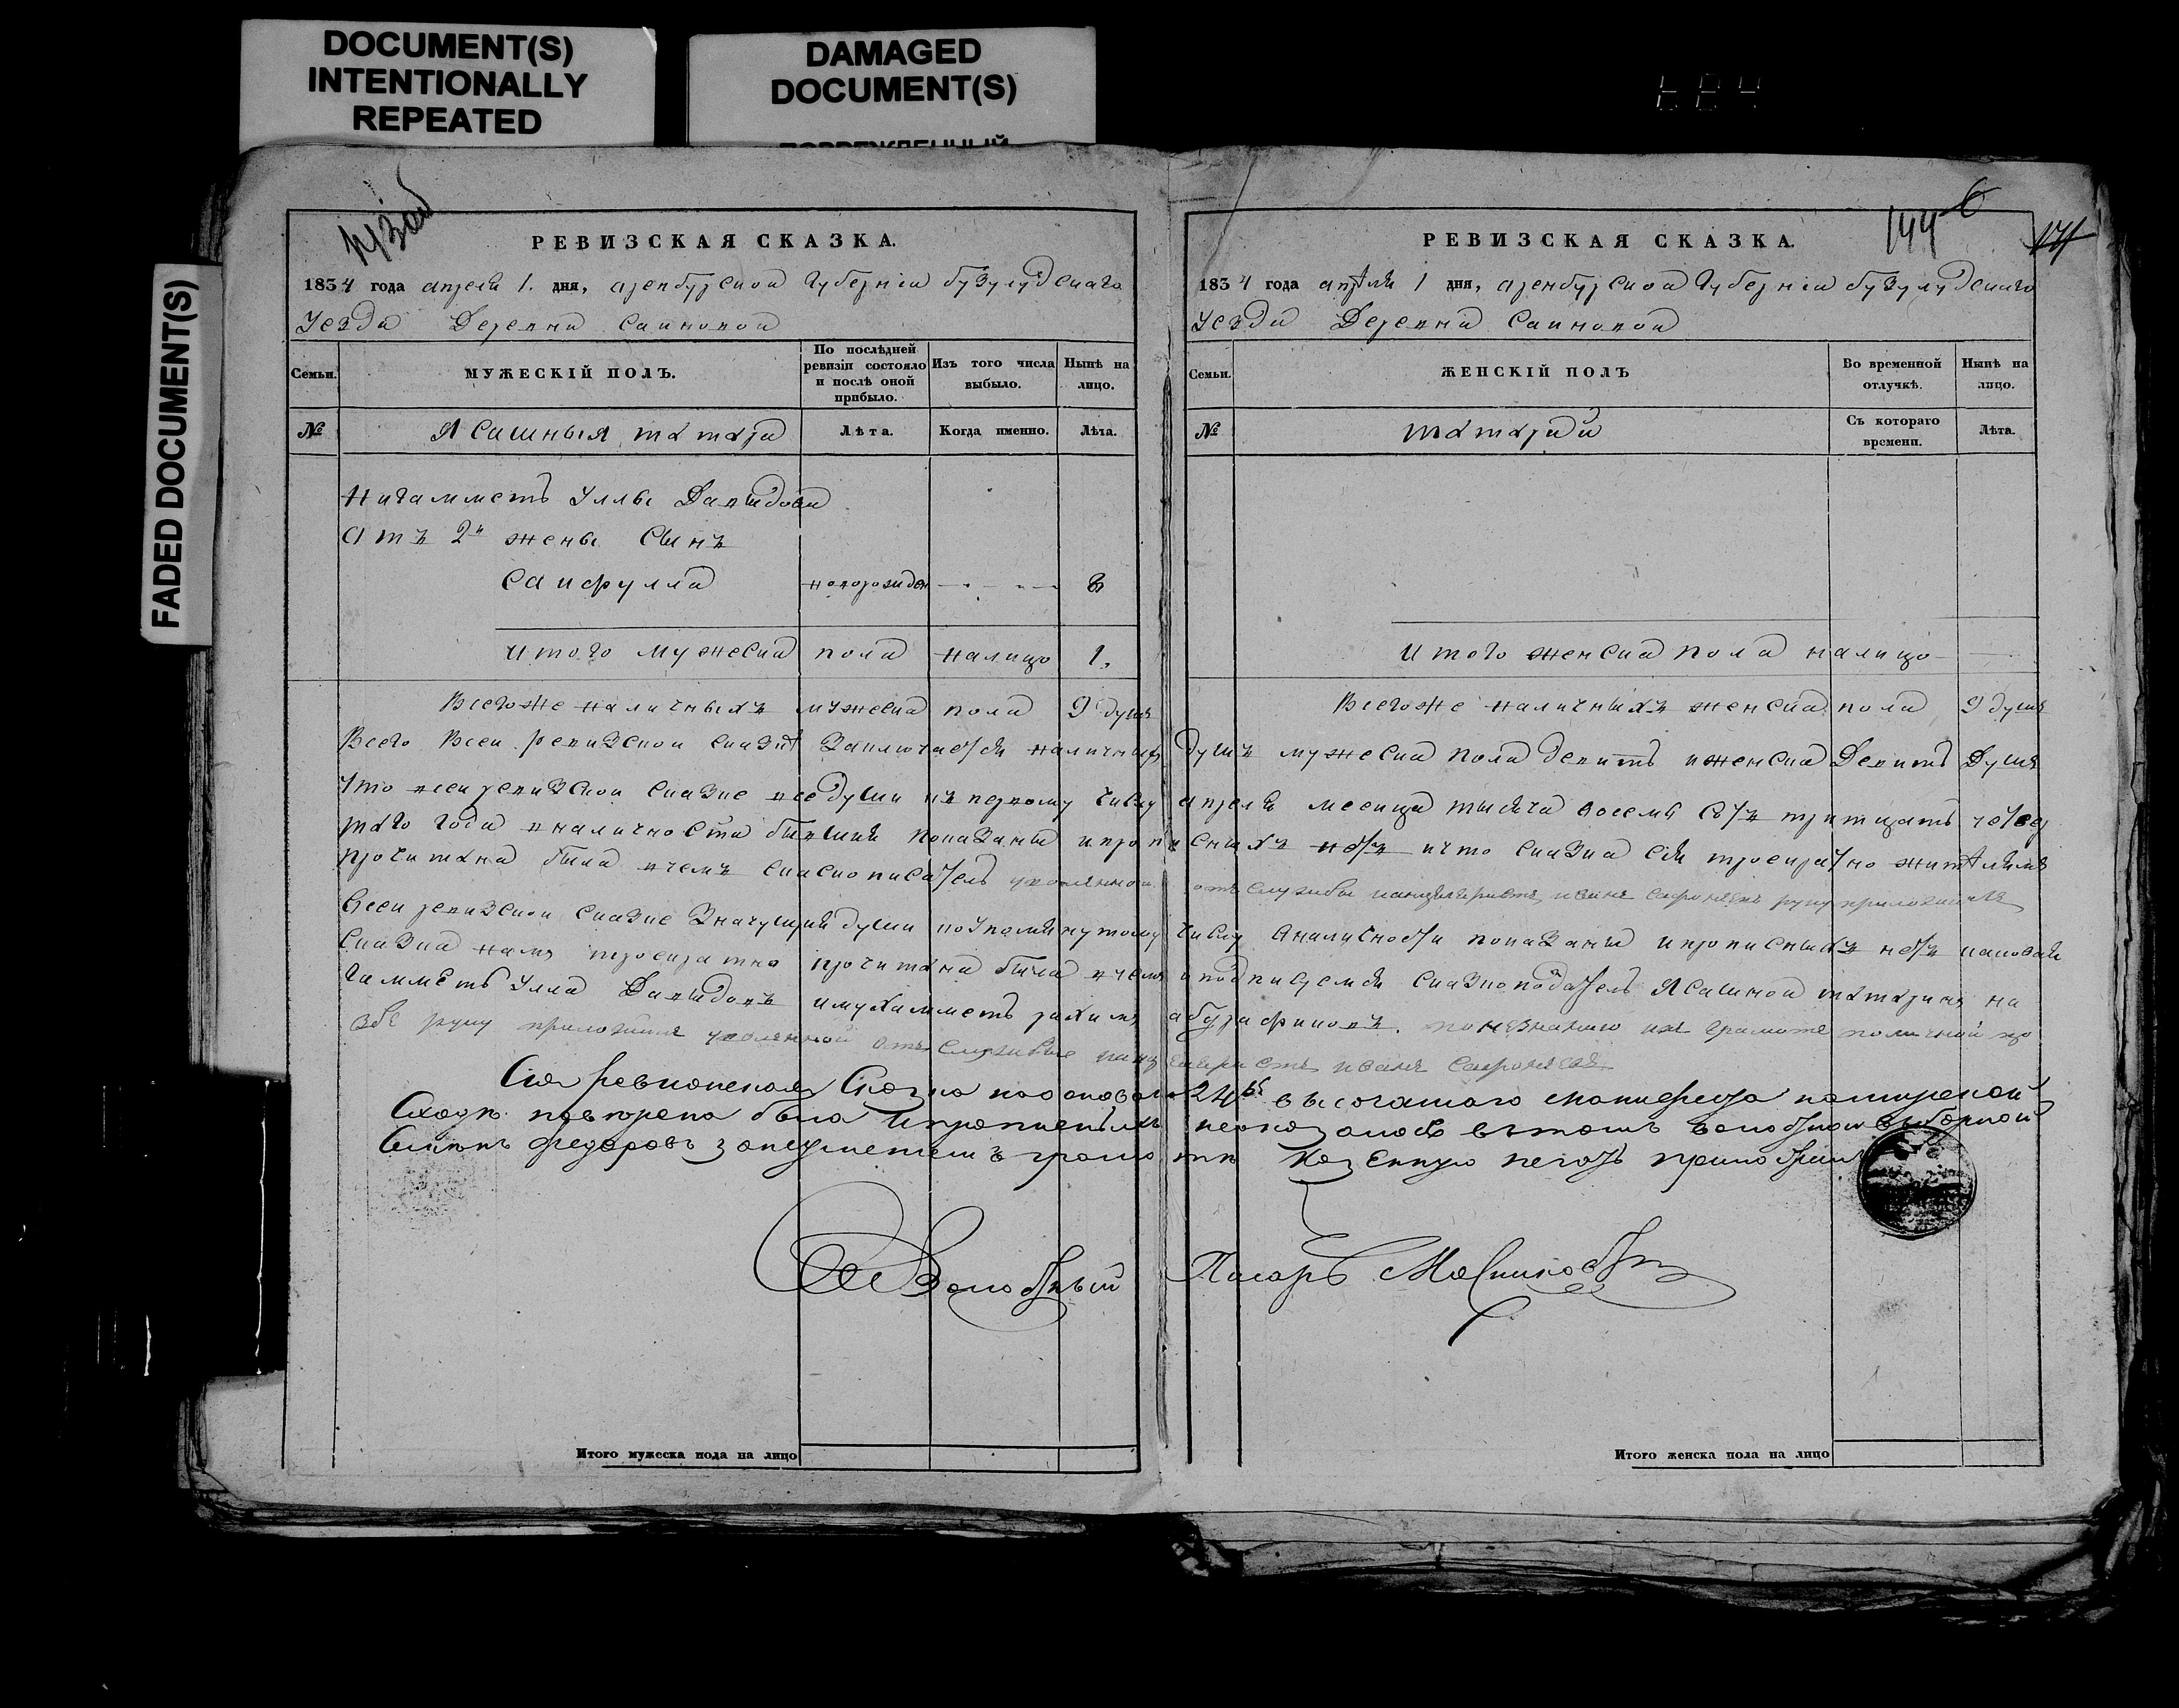 DOCUMENT(S)
INTENTIONALLY
REPEATED
DAMAGED
DOCUMENT(S)
FADED DOCUMENT(S)
РЕВИЗСКАЯ СКАЗКА.
1834 года апреля 1. дня, аренбурской губернии бузулудскаго
уезда Деревни Саиновой
Семьи.
МУЖЕСКІЙ ПОЛЪ.
По послѣдней ревизіи состояло и послѣ оной прибыло.
Изъ того числа выбыло.
Нынѣ на лицо.
№
Ясашныя татара
Лѣта.
Когда именно.
Лѣта.
Нигамметь Уллы Давыдова
атъ 2й жены Сынъ
Саифулла новорожден 8
итого мужеска пола налицо 1,
Всегоже наличныхъ мужеска пола 9 душъ
Итого мужеска пола на лицо
РЕВИЗСКАЯ СКАЗКА.
144
6
1834 года апреля 1 дня, аренбурской губернии бузулудскаго
уезда Деревни Саиновой
Семьи.
ЖЕНСКІЙ ПОЛЪ
Во временной отлучкѣ.
Нынѣ на лицо.
№
татарки
Съ котораго времени.
Лѣта.
итого женска пола налицо
Всегоже наличныхъ женска пола 9 душъ
Всего всеи ревизской сказке заключаетси наличныхъ душъ мужеска пола девить иженска Девить Душъ
Что всеи ревизской сказке все души къ первому числу апреля месеца тысяча восемь сотъ тритцать четвер
таго года вналичности бывшия показаны и прописныхъ нетъ ичто сказка сия троекратно жителямъ
прочитана была вчемъ уволенной отъ службы канцеляристъ иванъ руку приложилъ
Всеи ревизской сказке значущия души поупомянутому числу вналичности показаны и прописныхъ нетъ каковая
сказка намъ троекратно прочитана была вчемъ и подписуемся сказкоподатель Ясашной татаринъ ни
гамметь Улла Давыдовъ имухамметь рахимъ понезнанию их грамоте поличной про
збе руку приложилъ уволенной отъ службы канцеляристъ иванъ
Сия Ревизская Сказка на основа 24 высочашаго манифеста намирской
Сходке поверена была вътомъ волостной выборной
Федоровъ грамоте казенную печать приложилъ
Волостный Писарь
Итого женска пола на лицо